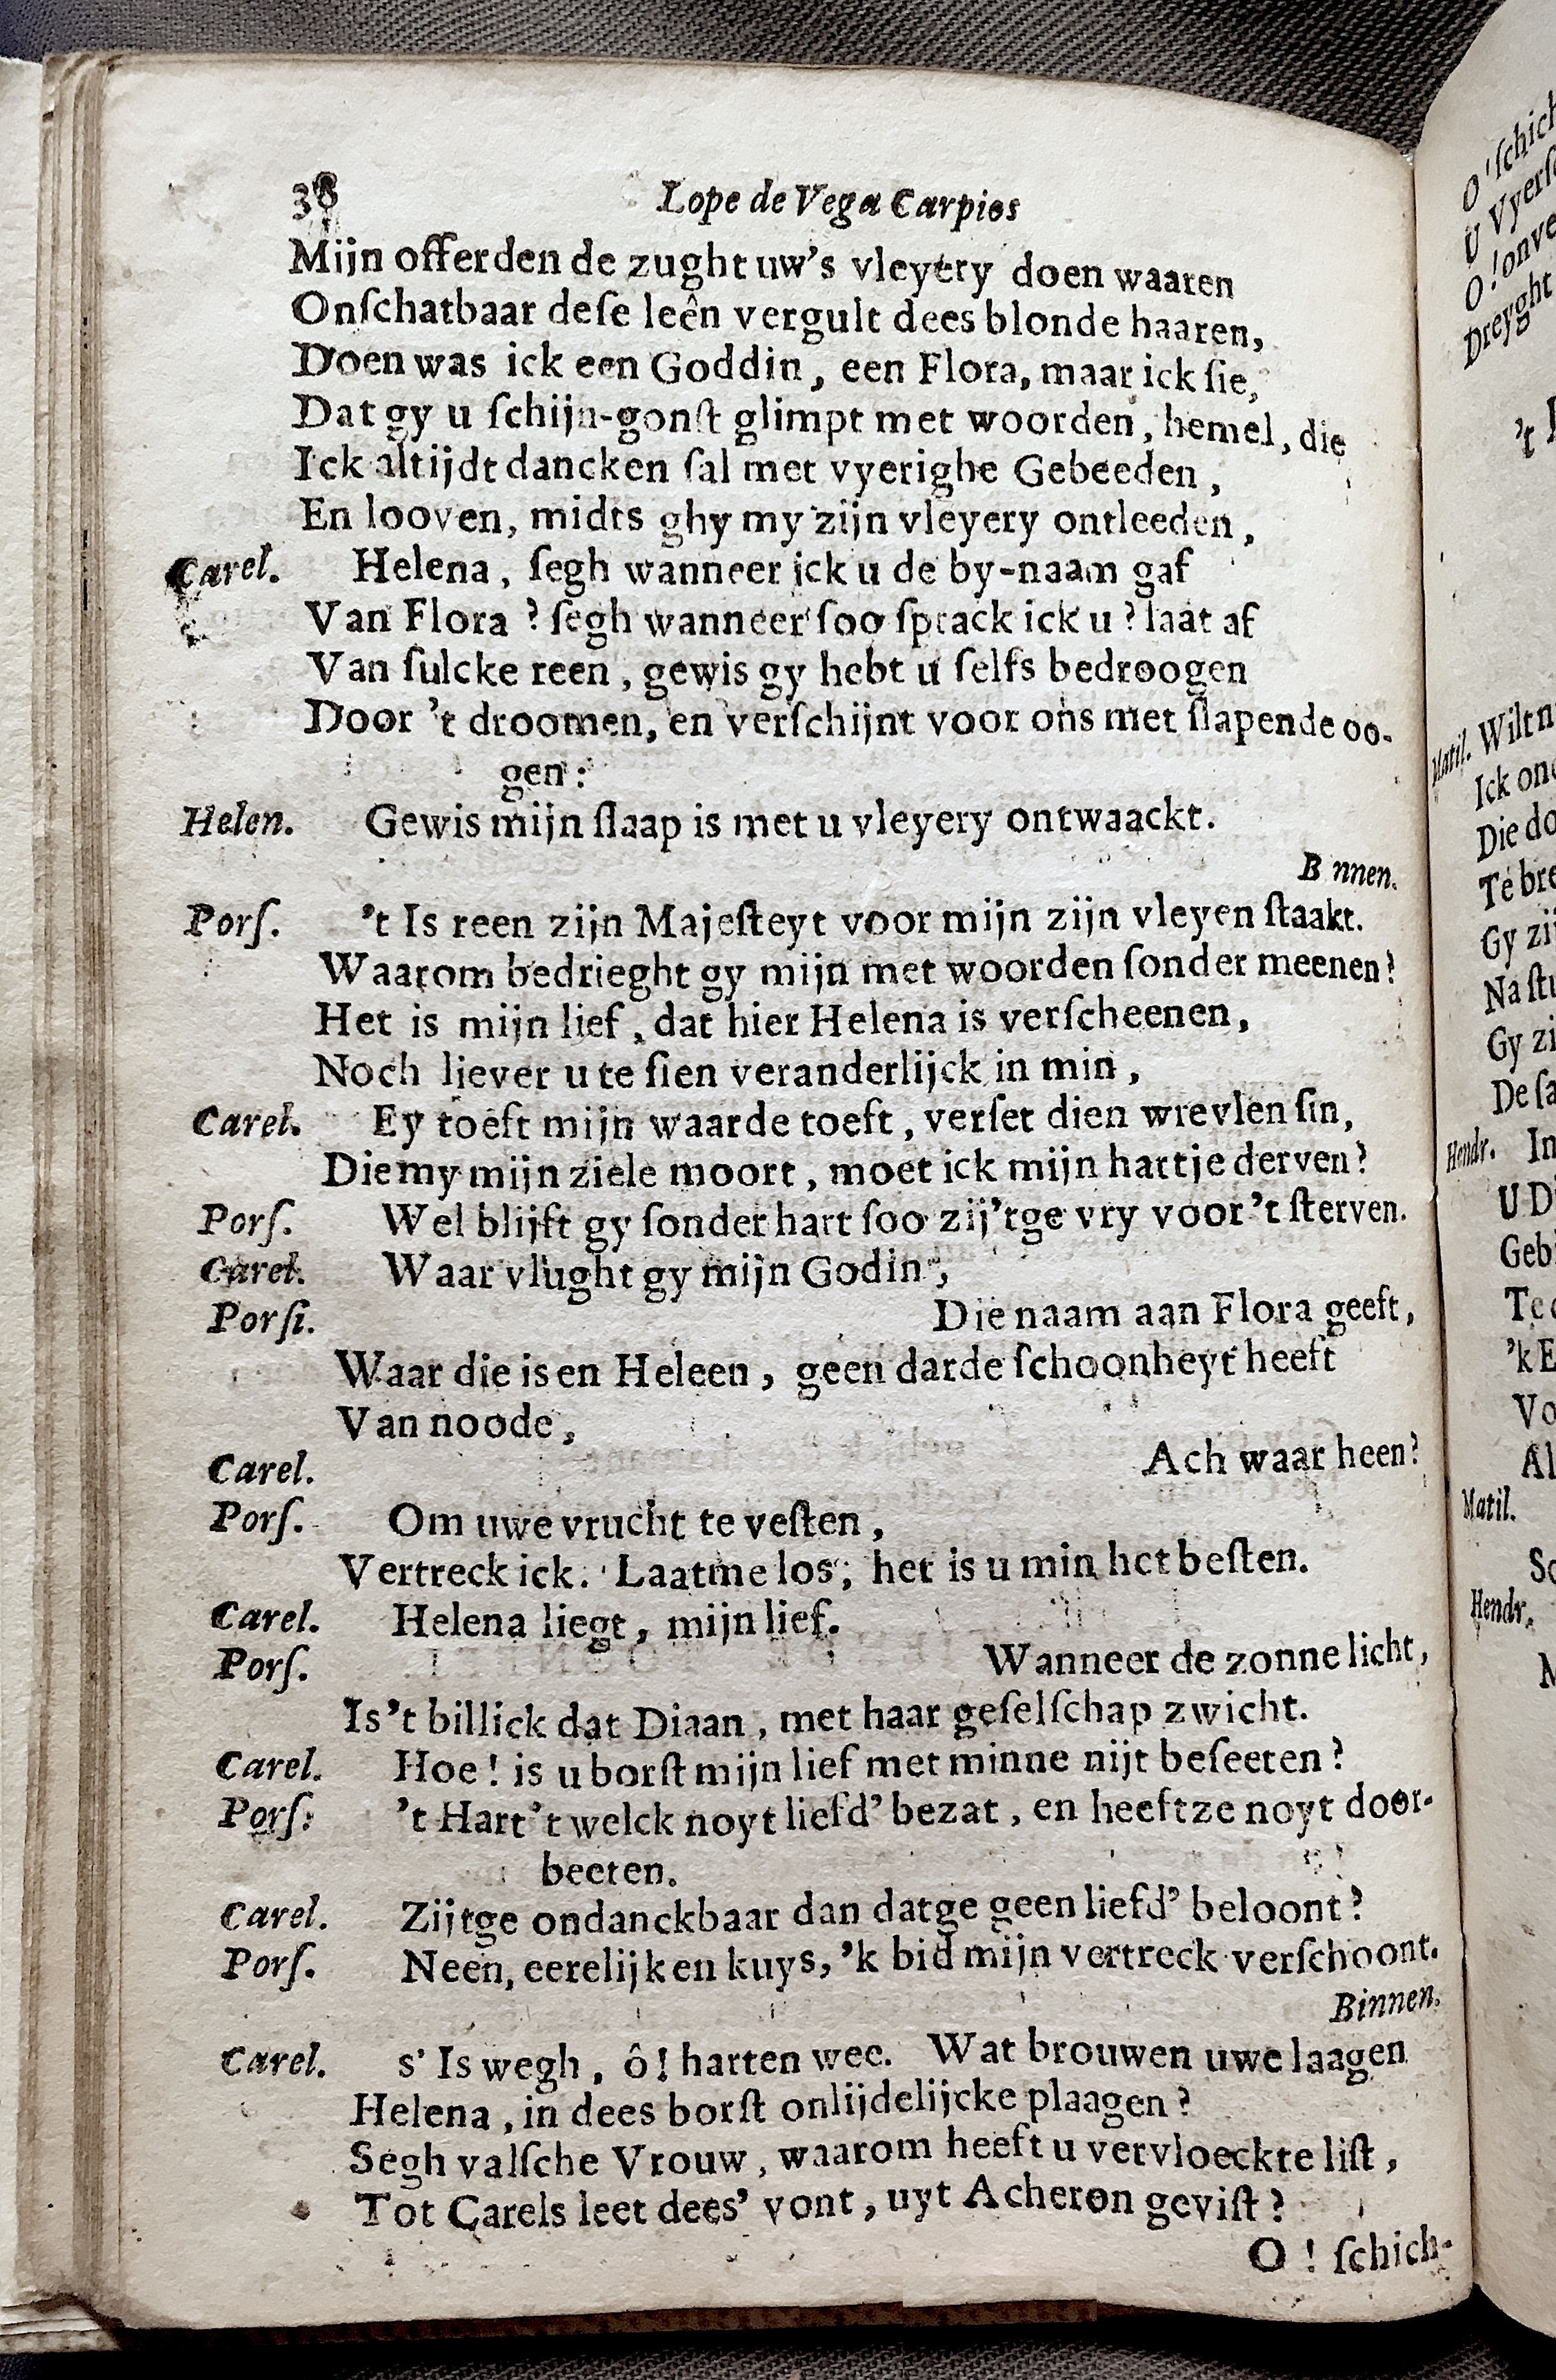 38 Lope de Vega Carpios
Mijn offerden de zught uw's vleyery doen waaren
Onſchatbaar deſe leên vergult dees blonde haaren,
Doen was ick een Goddin, een Flora, maar ick ſie,
Dat gy u ſchijn-gonſt glimpt met woorden, hemel, die
Ick altijdt dancken ſal met vyerighe Gebeeden,
En looven, midts ghy my zijn vleyery ontleeden,
Carel. Helena, ſegh wanneer ick u de by-naam gaf
Van Flora? ſegh wanneer ſoo ſprack ick u? laat af
Van ſulcke reen, gewis gy hebt u ſelfs bedroogen
Door 't droomen, en verſchijnt voor ons met ſlapende oo-
gen:
Helen. Gewis mijn ſlaap is met u vleyery ontwaackt.
B nnen.
Porſ. 't Is reen zijn Majeſteyt voor mijn zijn vleyen ſtaakt.
Waarom bedrieght gy mijn met woorden ſonder meenen?
Het is mijn lief, dat hier Helena is verſcheenen,
Noch liever u te ſien veranderlijck in min,
Carel. Ey toeft mijn waarde toeft, verſet dien wrevlen ſin,
Die my mijn ziele moort, moet ick mijn hartje derven?
Porſ. Wel blijft gy ſonder hart ſoo zij'tge vry voor 't ſterven.
Carel. Waar vlught gy mijn Godin,
Porſi. Die naam aan Flora geeft,
Waar die is en Heleen, geen darde ſchoonheyt heeft
Van noode,
Carel. Ach waar heen?
Porſ. Om uwe vrucht te veſten,
Vertreck ick. Laatme los; het is u min het beſten.
Carel. Helena liegt, mijn lief.
Porſ. Wanneer de zonne licht,
Is 't billick dat Diaan, met haar geſelſchap zwicht.
Carel. Hoe! is u borſt mijn lief met minne nijt beſeeten?
Porſ: 't Hart 't welck noyt liefd' bezat, en heeftze noyt door-
beeten.
Carel. Zijtge ondanckbaar dan datge geen liefd' beloont?
Porſ. Neen, eerelijk en kuys, 'k bid mijn vertreck verſchoont.
Binnen.
Carel. s' Is wegh, ô! harten wee. Wat brouwen uwe laagen
Helena, in dees borſt onlijdelijcke plaagen?
Segh valſche Vrouw, waarom heeft u vervloeckte liſt,
Tot Carels leet dees' vont, uyt Acheron geviſt?
O! ſchich-
O! ſchich
U Vyerſ
O! onve
Dreyght
't
Matil. Wilt n
Ick on
Die do
Te bre
Gy zij
Na ſt
Gy zi
De ſa
Hendr. In
U D
Geb
Te
'k E
Vo
Al
Matil.
So
Hendr.